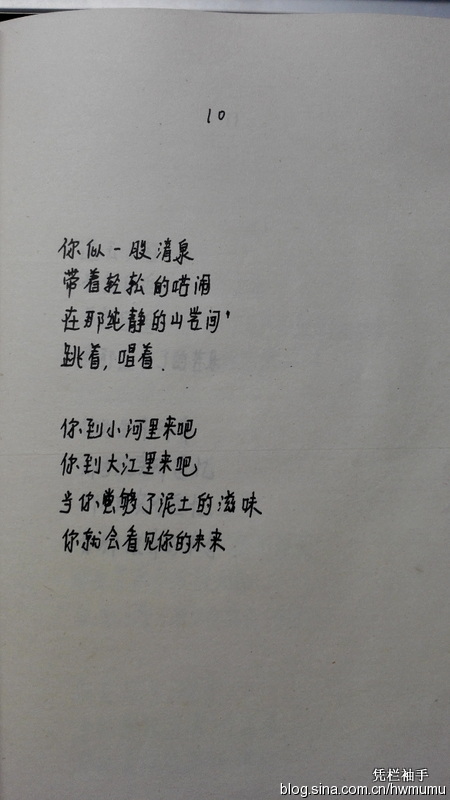 10
你似一股清泉
带着轻松的喧闹
在那纯静的山岩间，
跳着，唱着.
你到小河里来吧
你到大江里来吧
当你尝够了泥土的滋味
你就会看见你的未来
凭栏袖手
blog.sina.com.cn/hwmumu